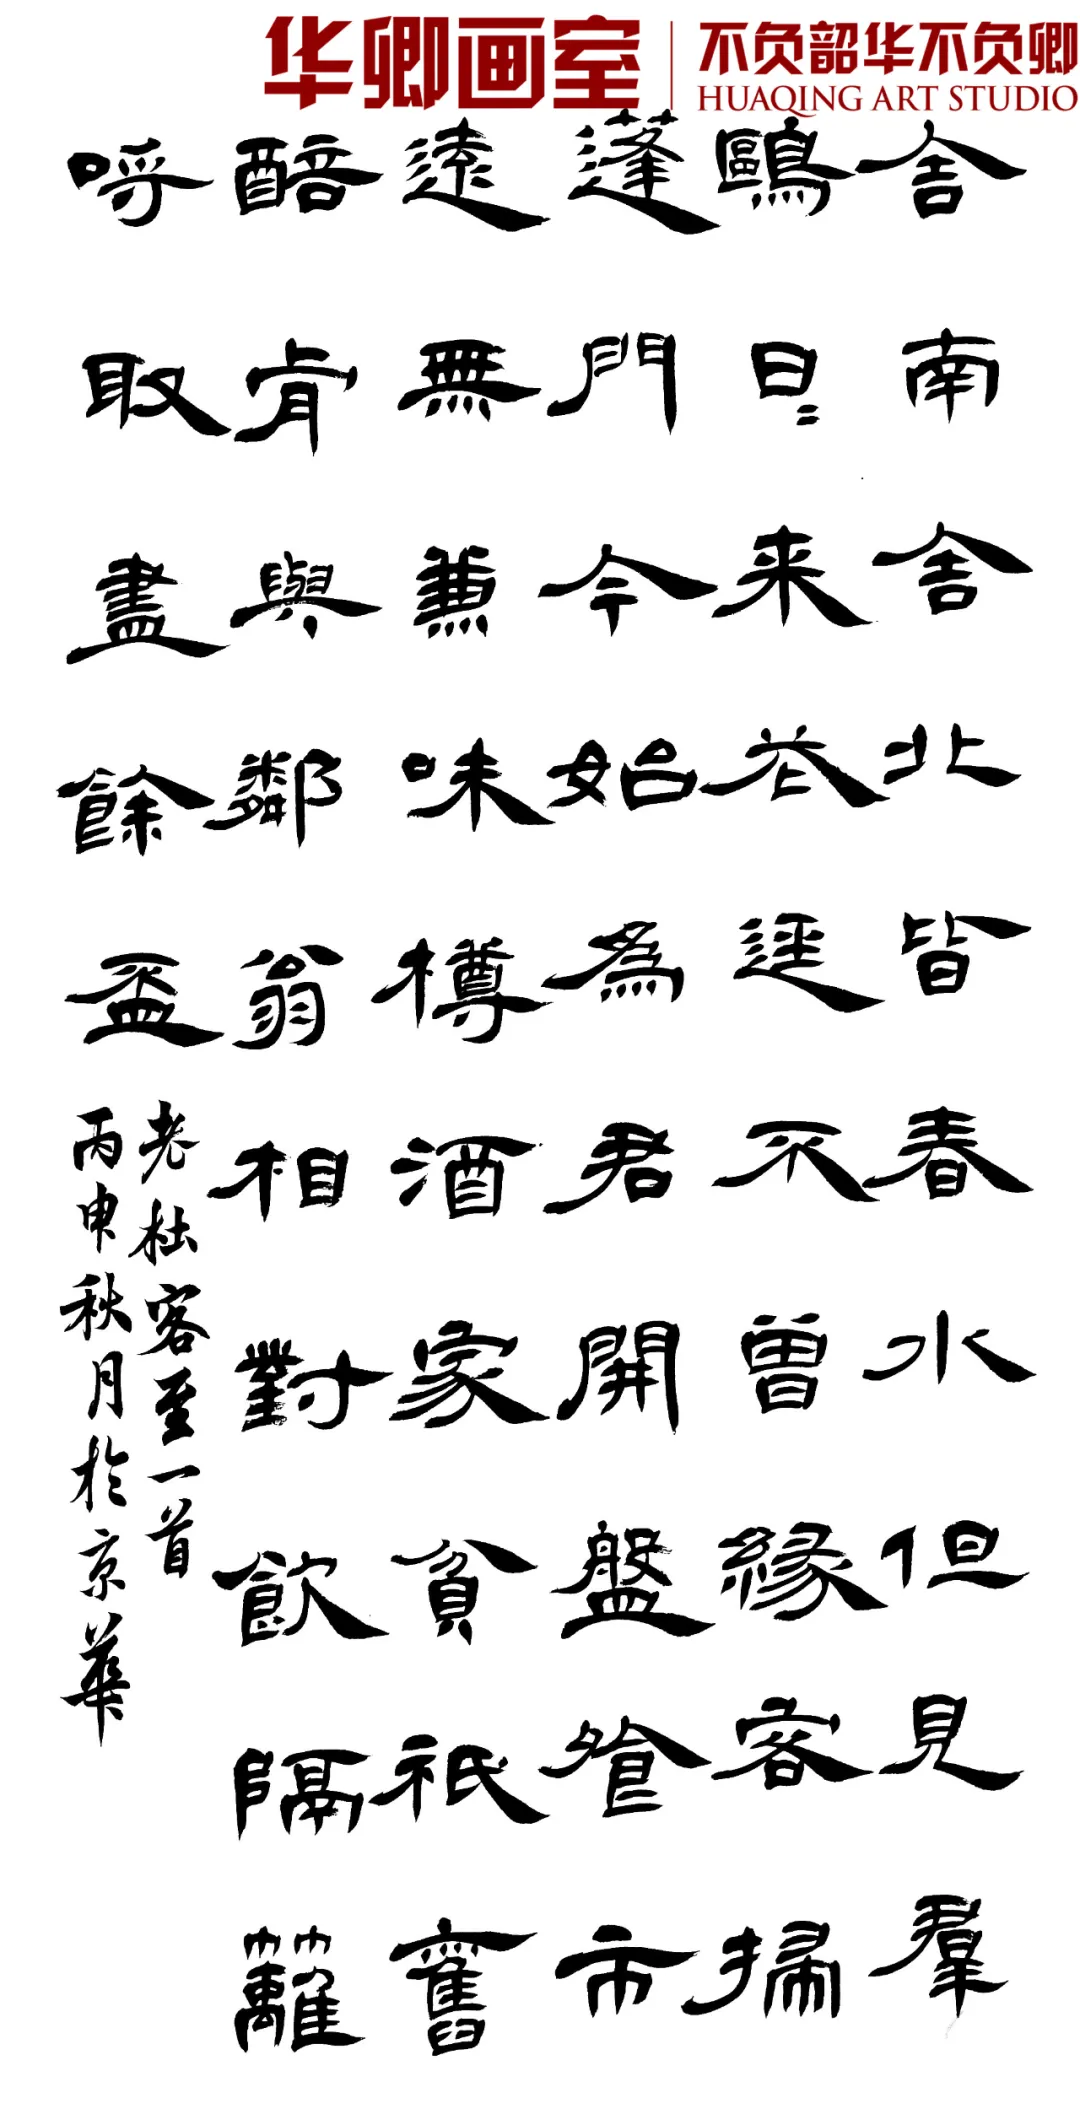 华卿画室
不负韶华不负卿
HUAQING ART STUDIO
舍南舍北皆春水但見羣
鷗日〻来花逕不曾緣客掃
蓬門今始為君開盤飱市
遠無兼味樽酒家貧祗舊
醅肯與鄰翁相對飲隔籬
呼取盡餘盃
老杜客至一首
丙申秋月於京華